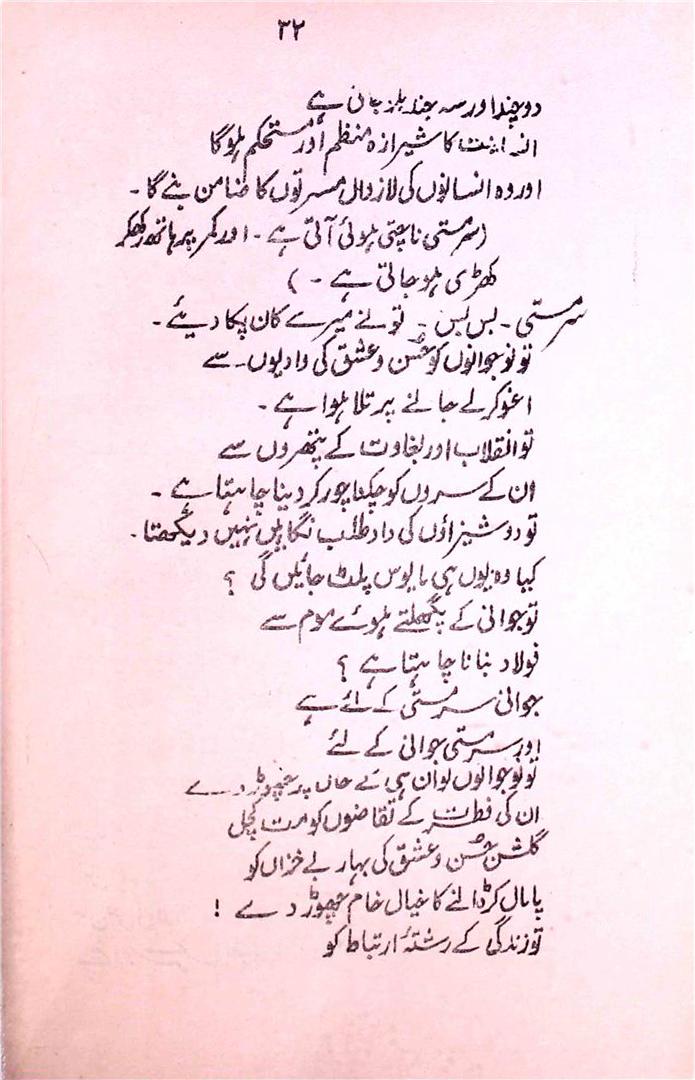 ۳۲
دوچند اور سہ چند ہر جان ہے
انسانیت کا شیرازہ منظم اور مستحکم ہوگا
اور وہ انسانوں کی لازوال مسرتوں کا ضامن بنے گا ۔
(سرمستی ناچتی ہوئی آتی ہے ۔ اور کمر پر ہاتھ رکھکر
کھڑی ہو جاتی ہے ۔ )
سرمستی ۔ بس بس ۔ تو نے میرے کان پکا دیئے ۔
تو نوجوانوں کو حسن و عشق کی وادیوں سے
اغوا کرلے جانے پر تلا ہوا ہے ۔
تو انقلاب اور بغاوت کے پتھروں سے
ان کے سروں کو چکنا چور کر دینا چاہتا ہے ۔
تو دوشیزاؤں کی داد طلب نگاہیں نہیں دیکھتا ۔
کیا وہ یوں ہی مایوس پلٹ جائیں گی ؟
تو جوانی کے پگھلتے ہوئے موم سے
فولاد بنانا چاہتا ہے ؟
جوانی سرمستی کے لئے ہے
اور سرمستی جوانی کے لئے
تو نوجوانوں کو ان ہی کے حال پر چھوڑ دے
ان کی فطرت کے تقاضوں کو مت کچل
گلشن حسن و عشق کی بہار بے خزاں کو
پامال کر ڈالنے کا خیال خام چھوڑ دے !
تو زندگی کے رشتۂ ارتباط کو